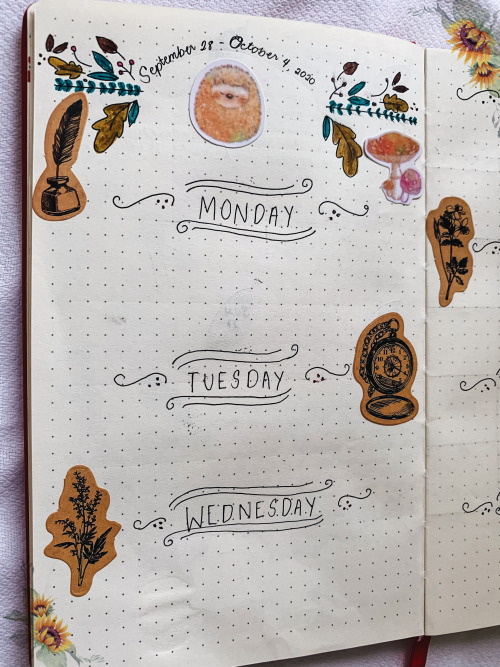 September 28 - October 4, 2020
MONDAY
TUESDAY
WEDNESDAY